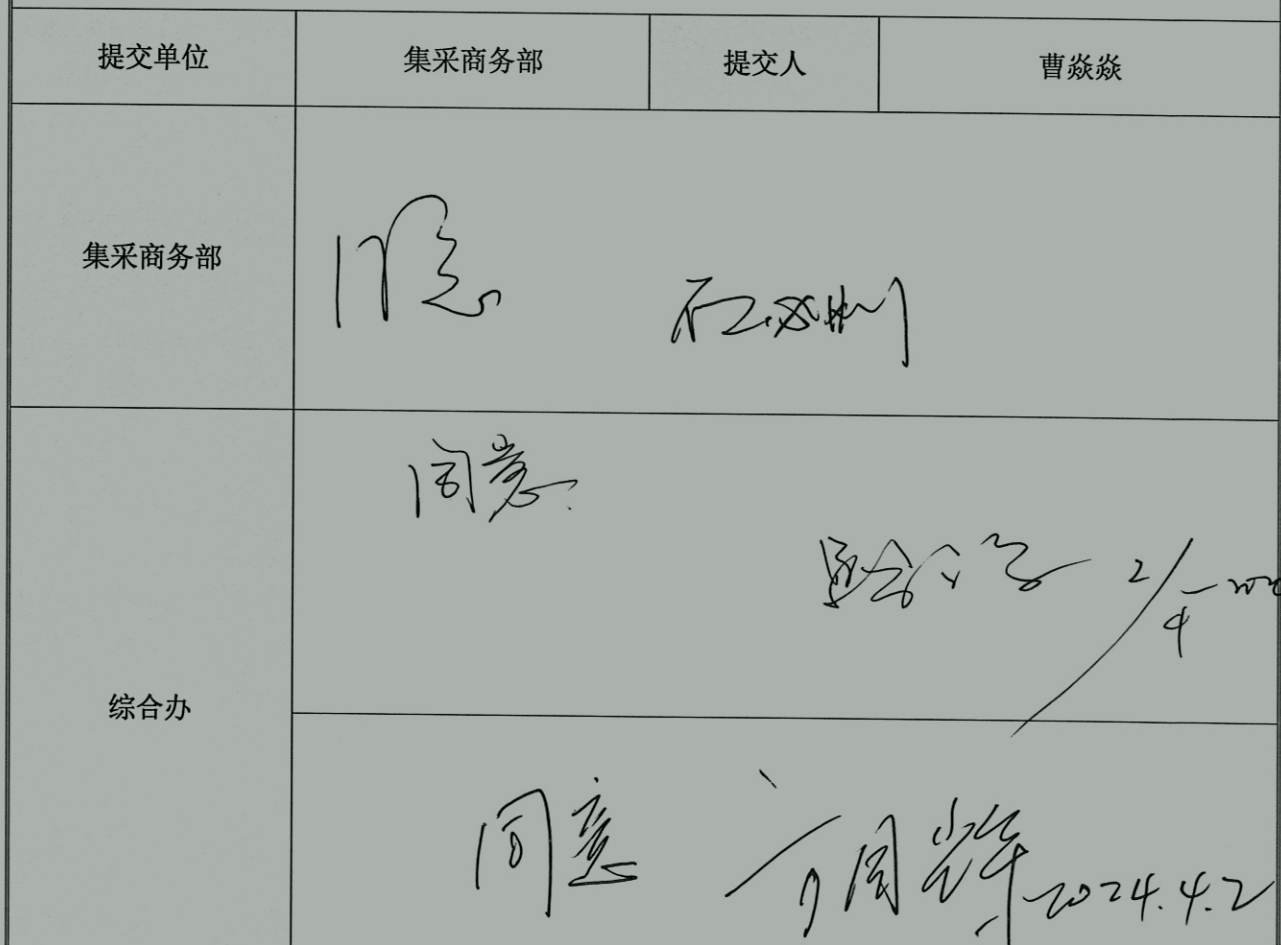 提交单位 集采商务部 提交人 曹焱焱
集采商务部
同意
同意
2/4
综合办
同意
2024.4.2